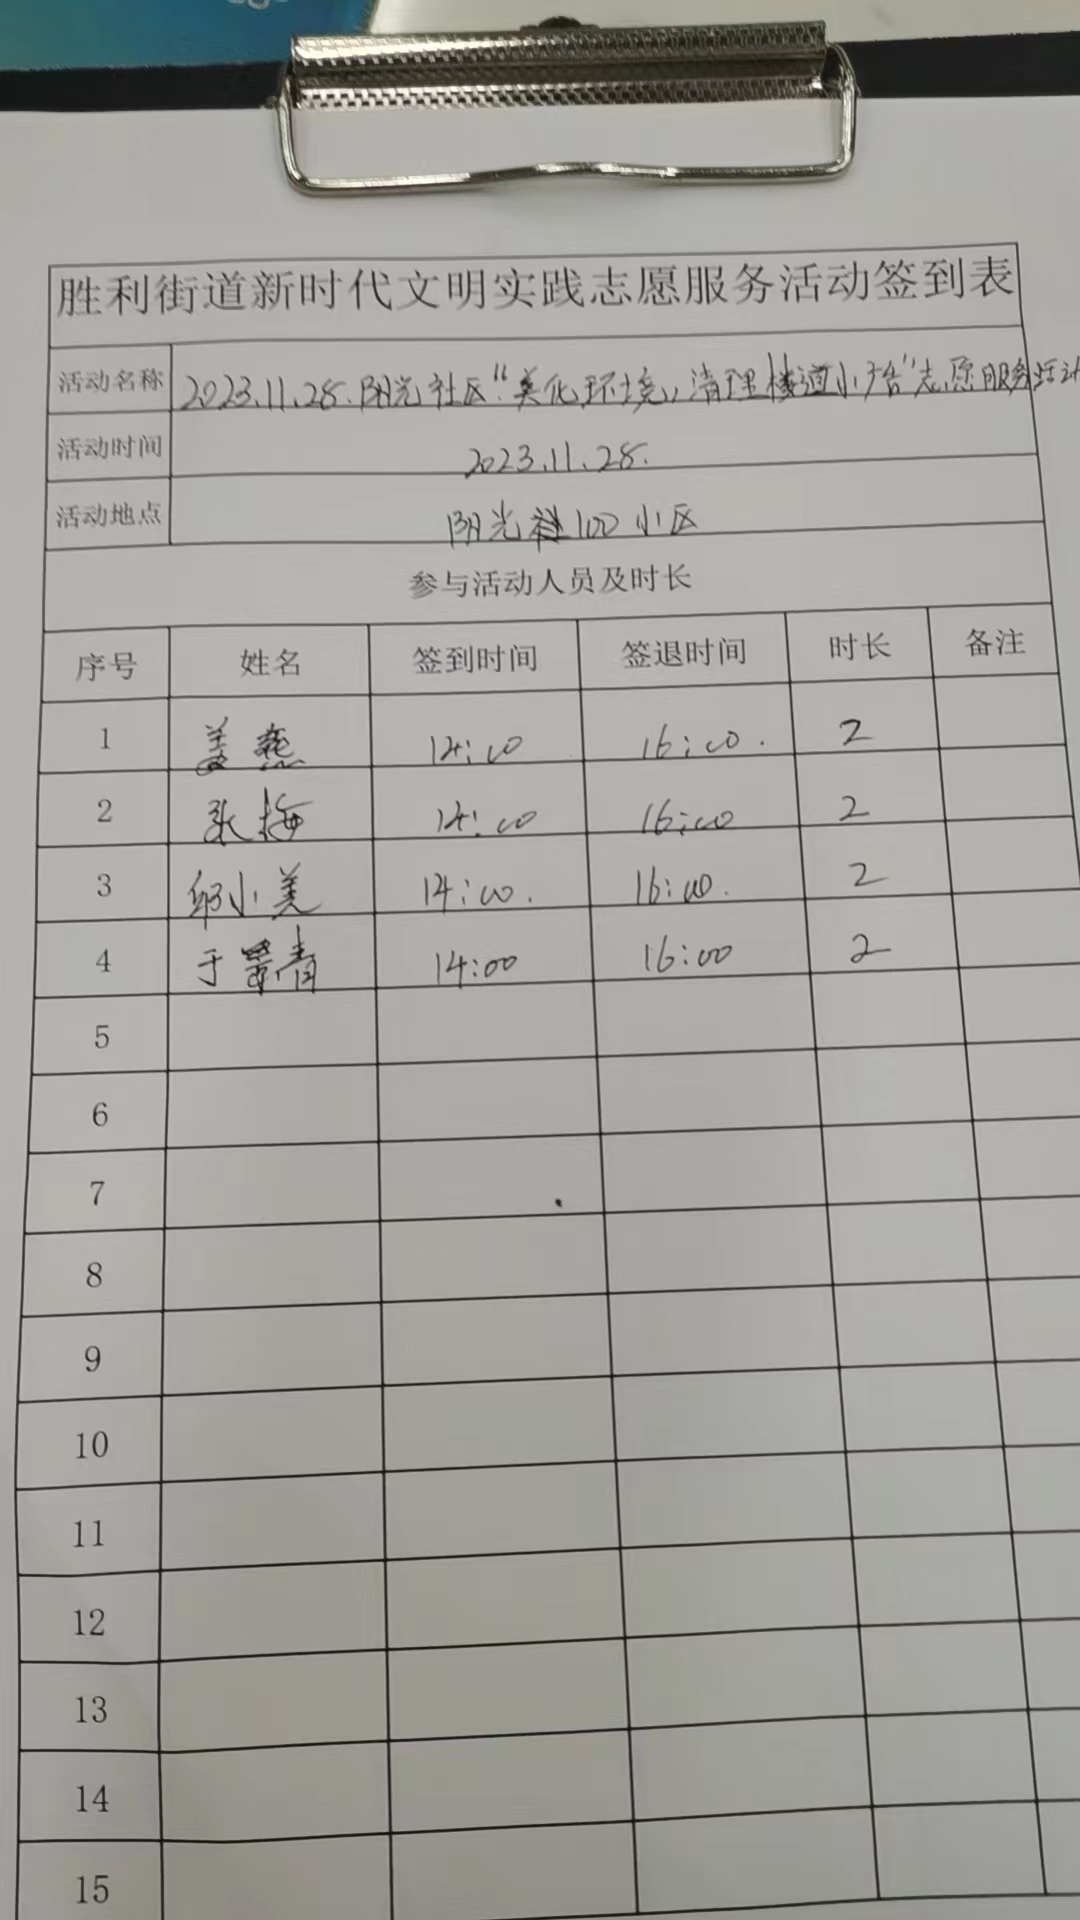 胜利街道新时代文明实践志愿服务活动签到表
活动名称 2023.11.28.阳光社区“美化环境,清理楼道小广告”志愿服务活动
活动时间 2023.11.28.
活动地点 阳光100小区
参与活动人员及时长
序号 姓名 签到时间 签退时间 时长 备注
1 姜燕 14:00 16:00. 2
2 张梅 14:00 16:00 2
3 邱小美 14:00. 16:00. 2
4 于 青 14:00 16:00 2
5
6
7
8
9
10
11
12
13
14
15